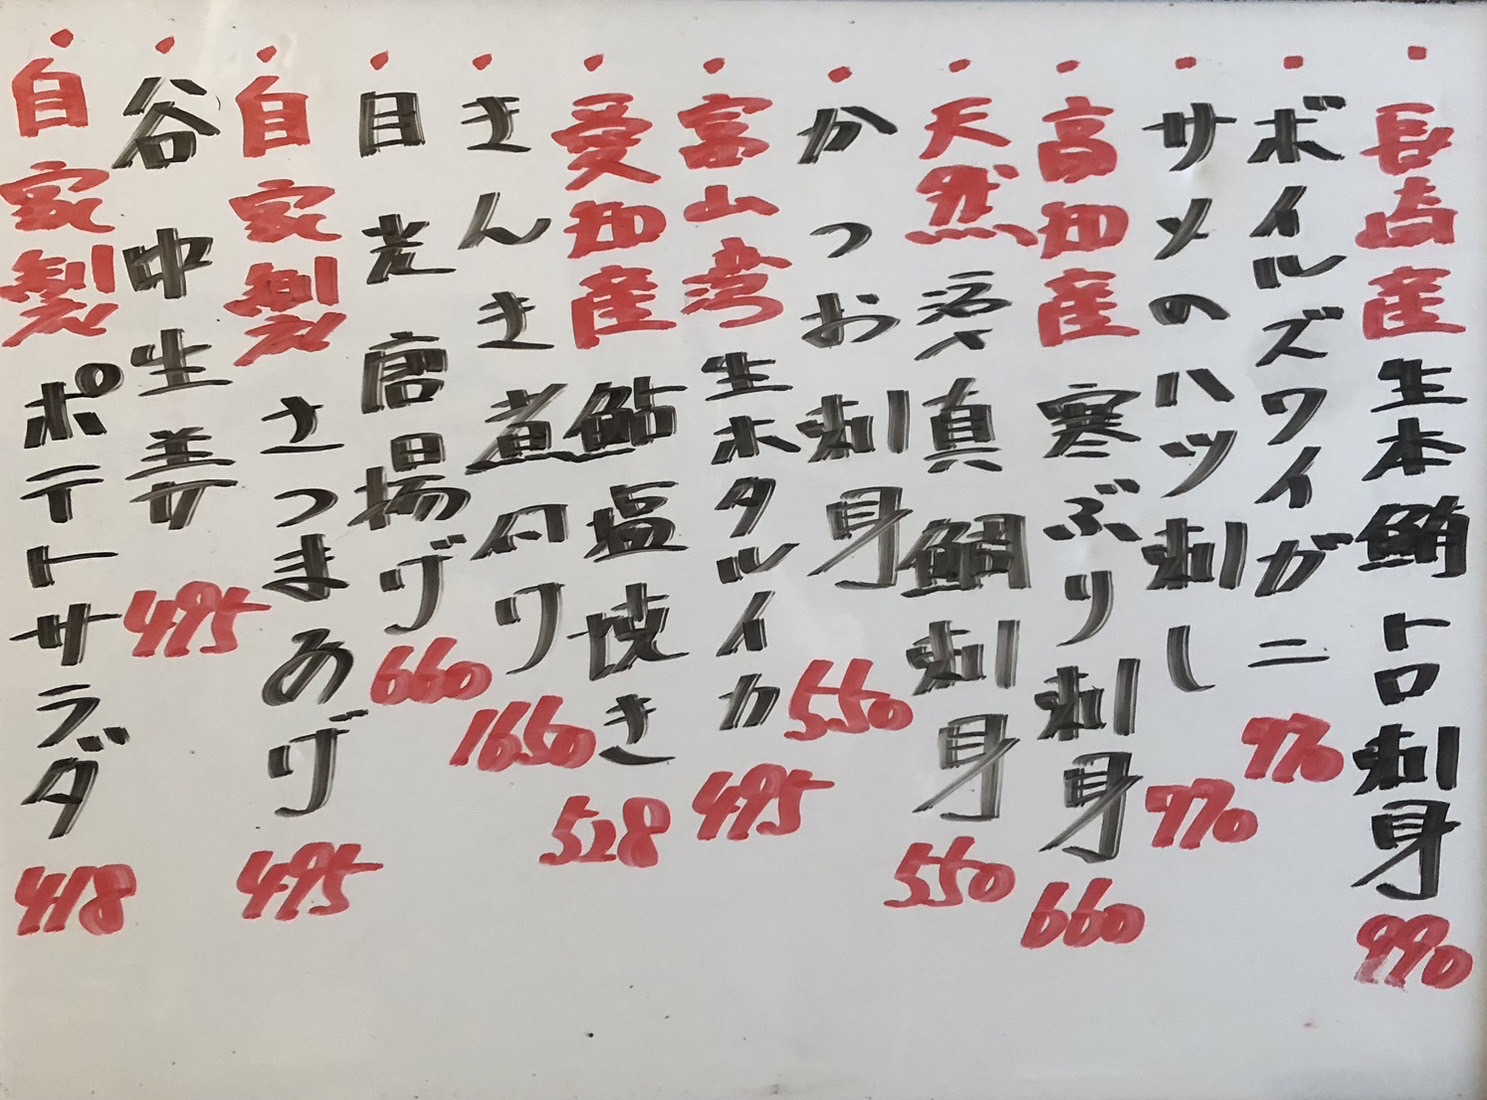 ・長崎産生本鮪トロ刺身 990
・ボイルズワイガニ 770
・サメのハツ刺し 770
・高知産寒ぶり刺身 660
・天然活〆真鯛刺身 550
・かつお刺身 550
・富山湾生ホタルイカ 495
・愛知産鮎塩焼き 528
・きんき煮 1650
・目光唐揚げ 660
・自家製さつまあげ 495
・谷中生姜 495
・自家製ポテトサラダ 418